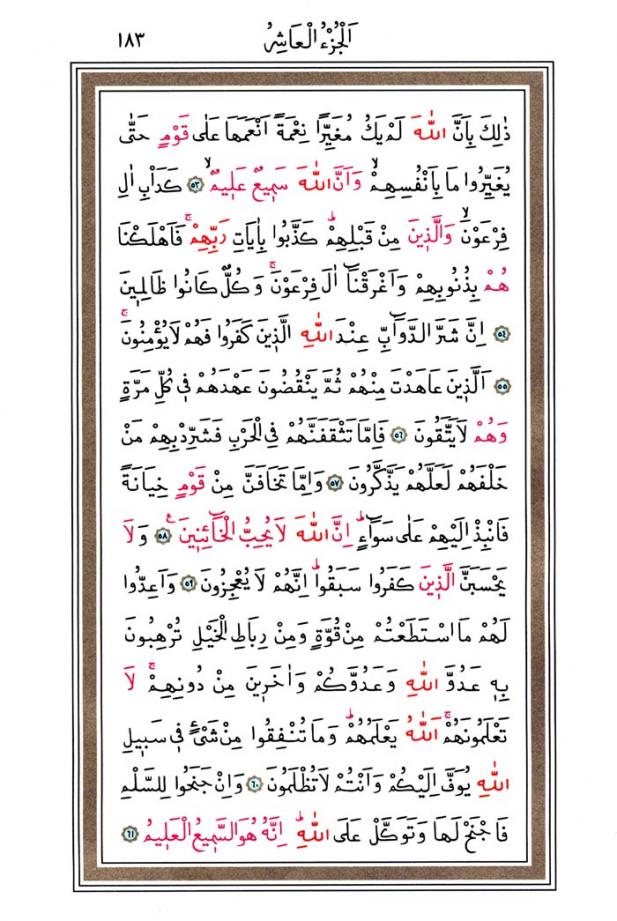 اَلْجُزْءُ الْعَاشِرُ ١٨٣
ذٰلِكَ بِاَنَّ اللّٰهَ لَمْ يَكُ مُغَيِّرًا نِعْمَةً اَنْعَمَهَا عَلٰى قَوْمٍ حَتّٰى
يُغَيِّرُوا مَا بِاَنْفُسِهِمْۙ وَاَنَّ اللّٰهَ سَمٖيعٌ عَلٖيمٌۙ ﴿٥٣﴾ كَدَاْبِ اٰلِ
فِرْعَوْنَۙ وَالَّذٖينَ مِنْ قَبْلِهِمْؕ كَذَّبُوا بِاٰيَاتِ رَبِّهِمْۚ فَاَهْلَكْنَا
هُمْ بِذُنُوبِهِمْ وَاَغْرَقْنَٓا اٰلَ فِرْعَوْنَۚ وَكُلٌّ كَانُوا ظَالِمٖينَ
﴿٥٤﴾ اِنَّ شَرَّ الدَّوَٓابِّ عِنْدَ اللّٰهِ الَّذٖينَ كَفَرُوا فَهُمْ لَا يُؤْمِنُونَۚ
﴿٥٥﴾ اَلَّذٖينَ عَاهَدْتَ مِنْهُمْ ثُمَّ يَنْقُضُونَ عَهْدَهُمْ فٖى كُلِّ مَرَّةٍ
وَهُمْ لَا يَتَّقُونَ ﴿٥٦﴾ فَاِمَّا تَثْقَفَنَّهُمْ فِى الْحَرْبِ فَشَرِّدْ بِهِمْ مَنْ
خَلْفَهُمْ لَعَلَّهُمْ يَذَّكَّرُونَ ﴿٥٧﴾ وَاِمَّا تَخَافَنَّ مِنْ قَوْمٍ خِيَانَةً
فَانْبِذْ اِلَيْهِمْ عَلٰى سَوَٓاءٍؕ اِنَّ اللّٰهَ لَا يُحِبُّ الْخَٓائِنٖينَࣖ ﴿٥٨﴾ وَلَا
يَحْسَبَنَّ الَّذٖينَ كَفَرُوا سَبَقُواؕ اِنَّهُمْ لَا يُعْجِزُونَ ﴿٥٩﴾ وَاَعِدُّوا
لَهُمْ مَا اسْتَطَعْتُمْ مِنْ قُوَّةٍ وَمِنْ رِبَاطِ الْخَيْلِ تُرْهِبُونَ
بِهٖ عَدُوَّ اللّٰهِ وَعَدُوَّكُمْ وَاٰخَرٖينَ مِنْ دُونِهِمْۚ لَا
تَعْلَمُونَهُمْۚ اَللّٰهُ يَعْلَمُهُمْؕ وَمَا تُنْفِقُوا مِنْ شَیْءٍ فٖى سَبٖيلِ
اللّٰهِ يُوَفَّ اِلَيْكُمْ وَاَنْتُمْ لَا تُظْلَمُونَ ﴿٦٠﴾ وَاِنْ جَنَحُوا لِلسَّلْمِ
فَاجْنَحْ لَهَا وَتَوَكَّلْ عَلَى اللّٰهِؕ اِنَّهُ هُوَ السَّمٖيعُ الْعَلٖيمُ ﴿٦١﴾